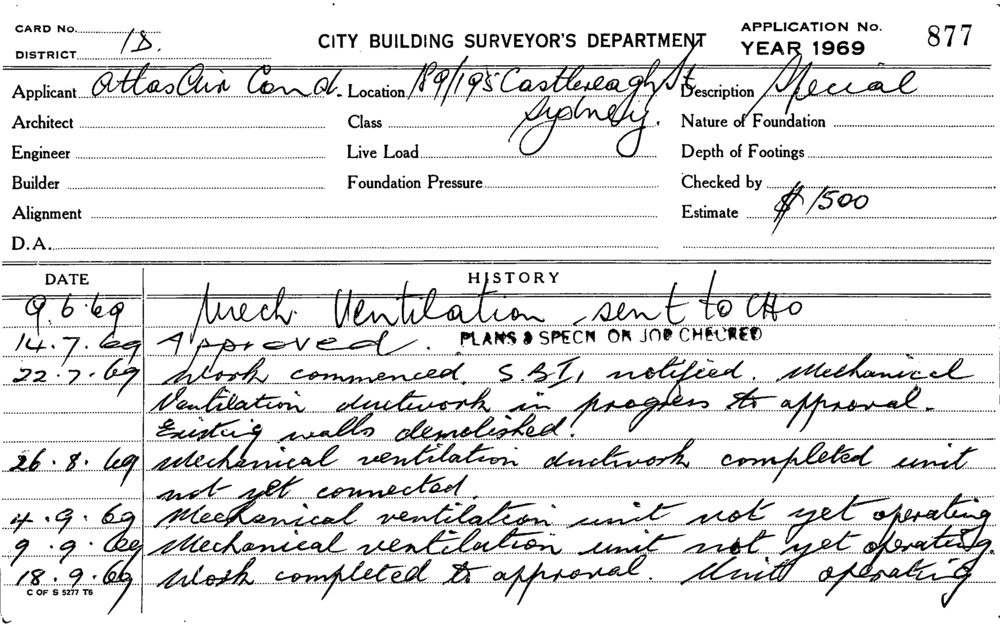 CARD No.
DISTRICT 1D.
CITY BUILDING SURVEYOR'S DEPARTMENT
APPLICATION No. 877
YEAR 1969
Applicant Atlas Air Cond. Location 189/195 Castlereagh St Description Special
Architect Class Sydney. Nature of Foundation
Engineer Live Load Depth of Footings
Builder Foundation Pressure Checked by
Alignment Estimate $1500
D.A.
DATE HISTORY
9.6.69 Mech. Ventilation sent to CHO
14.7.69 Approved. PLANS & SPECN ON JOB CHECKED
22.7.69 Work commenced. S.B.I. notified. Mechanical
Ventilation ductwork in progress to approval.
Existing walls demolished.
26.8.69 Mechanical ventilation ductwork completed unit
not yet connected.
4.9.69 Mechanical ventilation unit not yet operating
9.9.69 Mechanical ventilation unit not yet operating.
18.9.69 Work completed to approval. Unit operating
C OF S 5277 T6